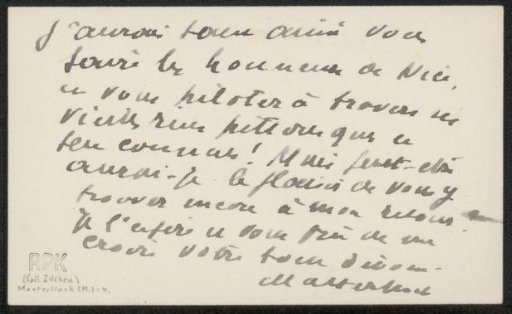 J'aurais tant aimé vous
faire les honneurs de Nice,
et vous piloter à travers ses
vieilles rues pittoresques et
peu connues ! Mais peut-être
aurai-je le plaisir de vous y
trouver encore à mon retour.
Je l'espère et vous prie de me
croire votre bien dévoué.
RPK
(Coll. Zilcken)